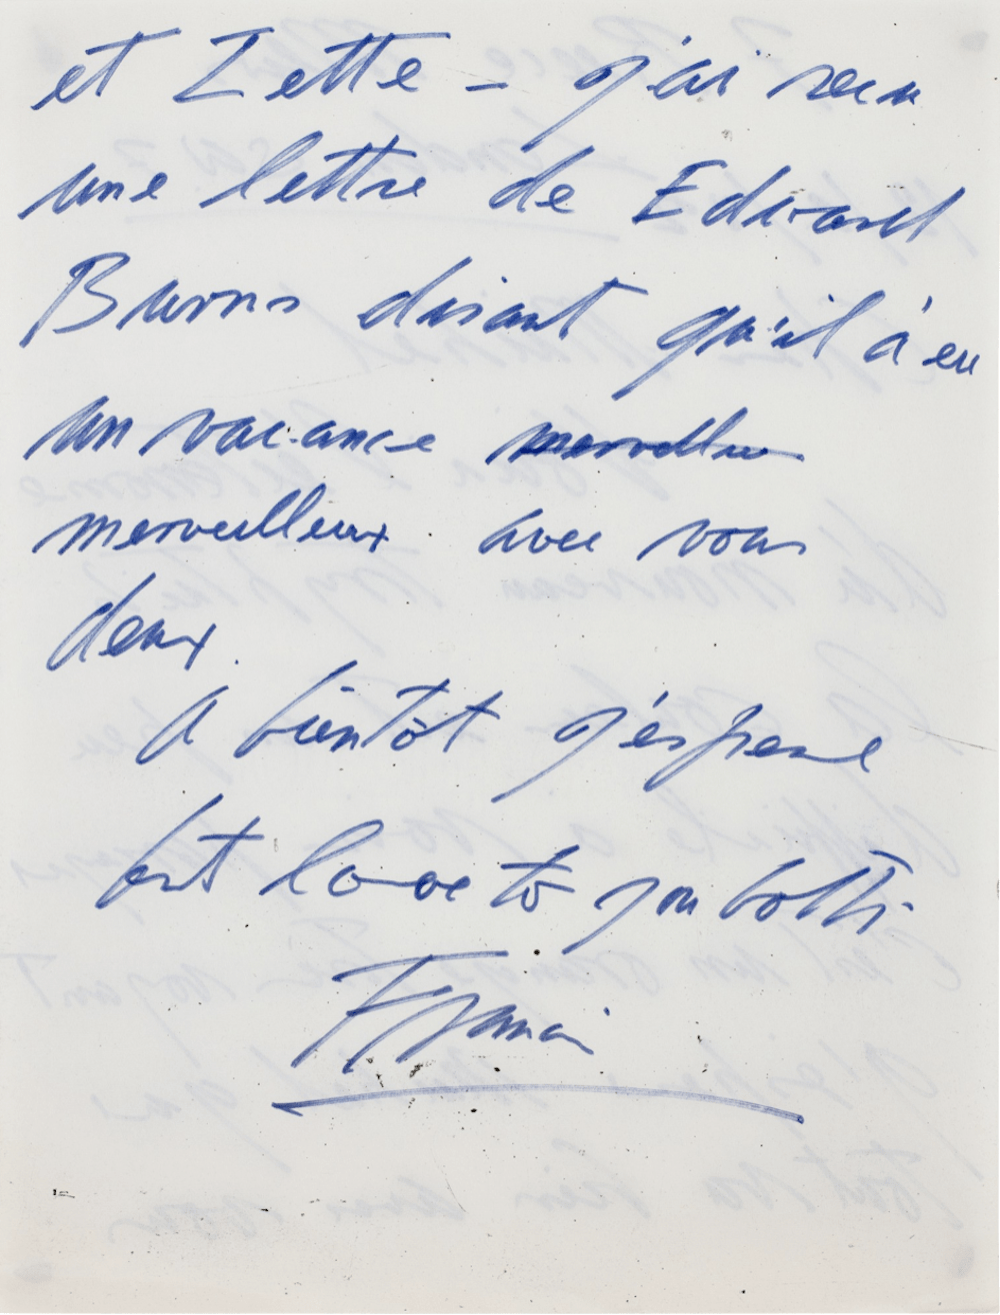 et Zette – j'ai reçu
une lettre de Edward
Burns disant qu'il à eu
un vacance merveilleu
merveilleux avec vous
deux.
A bientôt j'éspere
best love to you both.
Francis